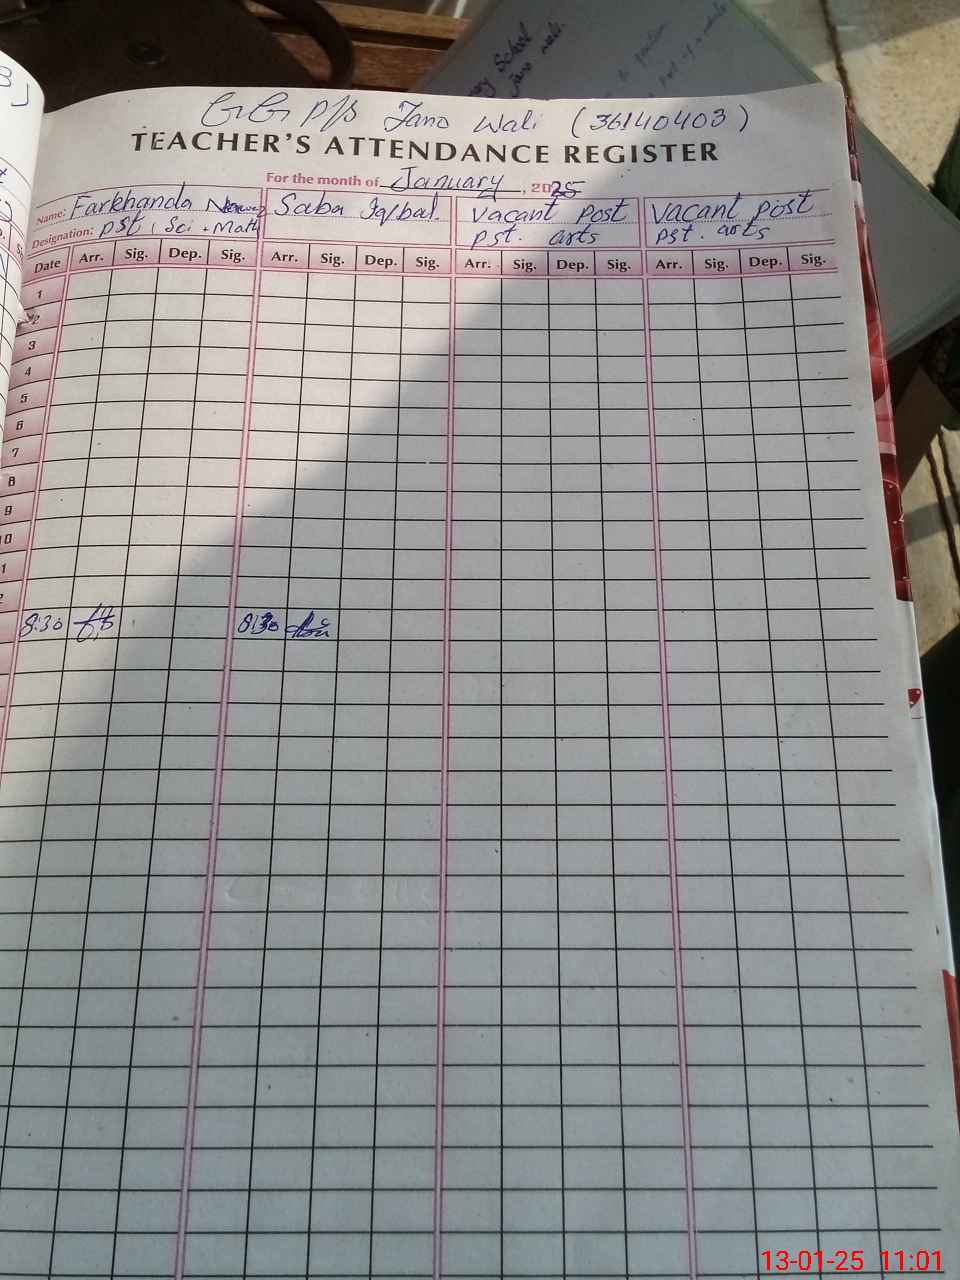 GGP/S Jano Wali (36140403)
TEACHER'S ATTENDANCE REGISTER
For the month of January, 2025
Name: Farkhanda Nawaz Saba Iqbal. Vacant post Vacant post
Designation: PST, Sci. Math PST. arts PST. arts
Date Arr. Sig. Dep. Sig. Arr. Sig. Dep. Sig. Arr. Sig. Dep. Sig. Arr. Sig. Dep. Sig.
1
2
3
4
5
6
7
8
9
10
1
2
8:30 8:30
13-01-25 11:01